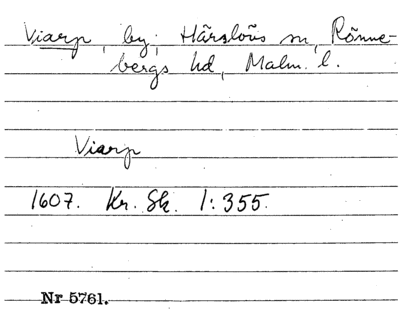 Viarp, by; Härslövs sn, Rönne-
bergs hd, Malm. l.
Viarp
1607. Kr. Sk. 1:355.
Nr 5761.